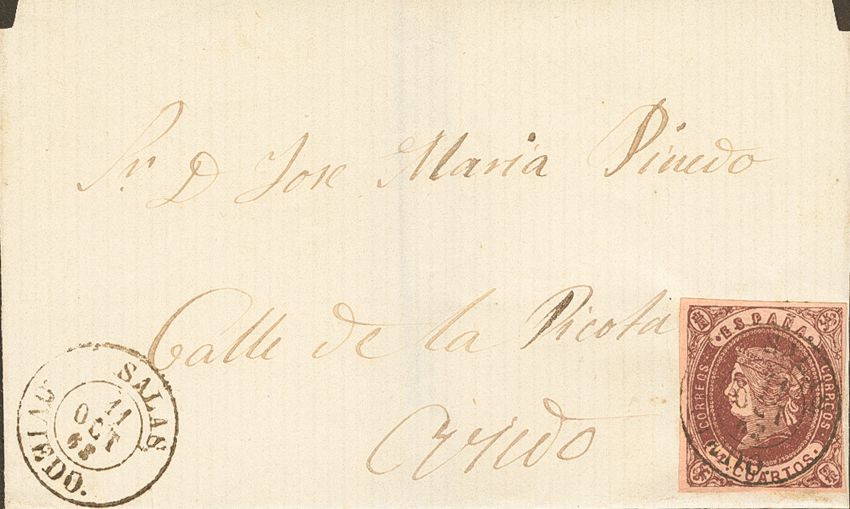 Sr. D Jose Maria Pinedo
Calle de la Picota
Oviedo
SALAS
11
OCT
63
OVIEDO.
ESPAÑA
CORREOS
CORREOS
CUARTOS